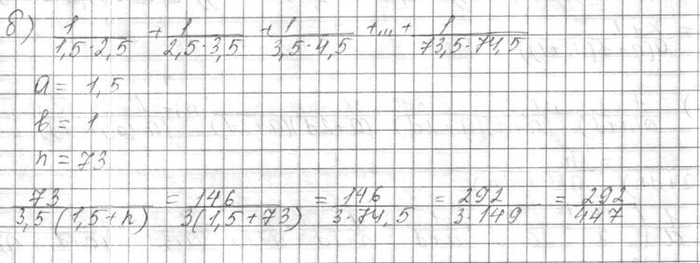 б) 1/(1,5·2,5) + 1/(2,5·3,5) + 1/(3,5·4,5) + ... + 1/(73,5·74,5)
a = 1,5
b = 1
n = 73
73/(3,5(1,5+n)) = 146/(3(1,5+73)) = 146/(3·74,5) = 292/(3·149) = 292/447